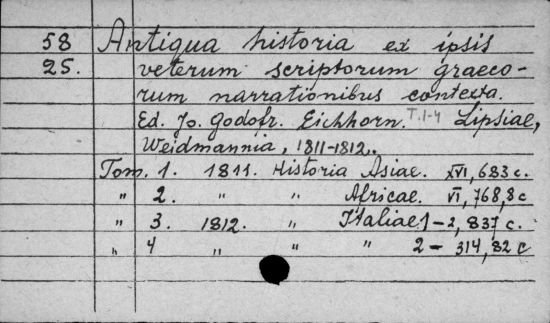 58 Antiqua historia ex ipsis
25. veterum scriptorum graeco-
rum narrationibus contexta.
Ed. Jo. Godofr. Eichhorn. T.1-4 Lipsiae,
Weidmannia, 1811-1812.
Tom. 1. 1811. Historia Asiae. XVI, 683 c.
" 2. " " Africae. VI, 768, 8 c
" 3. 1812. " Italiae 1 - 2, 837 c.
" 4 " " " 2 - 314, 82 c